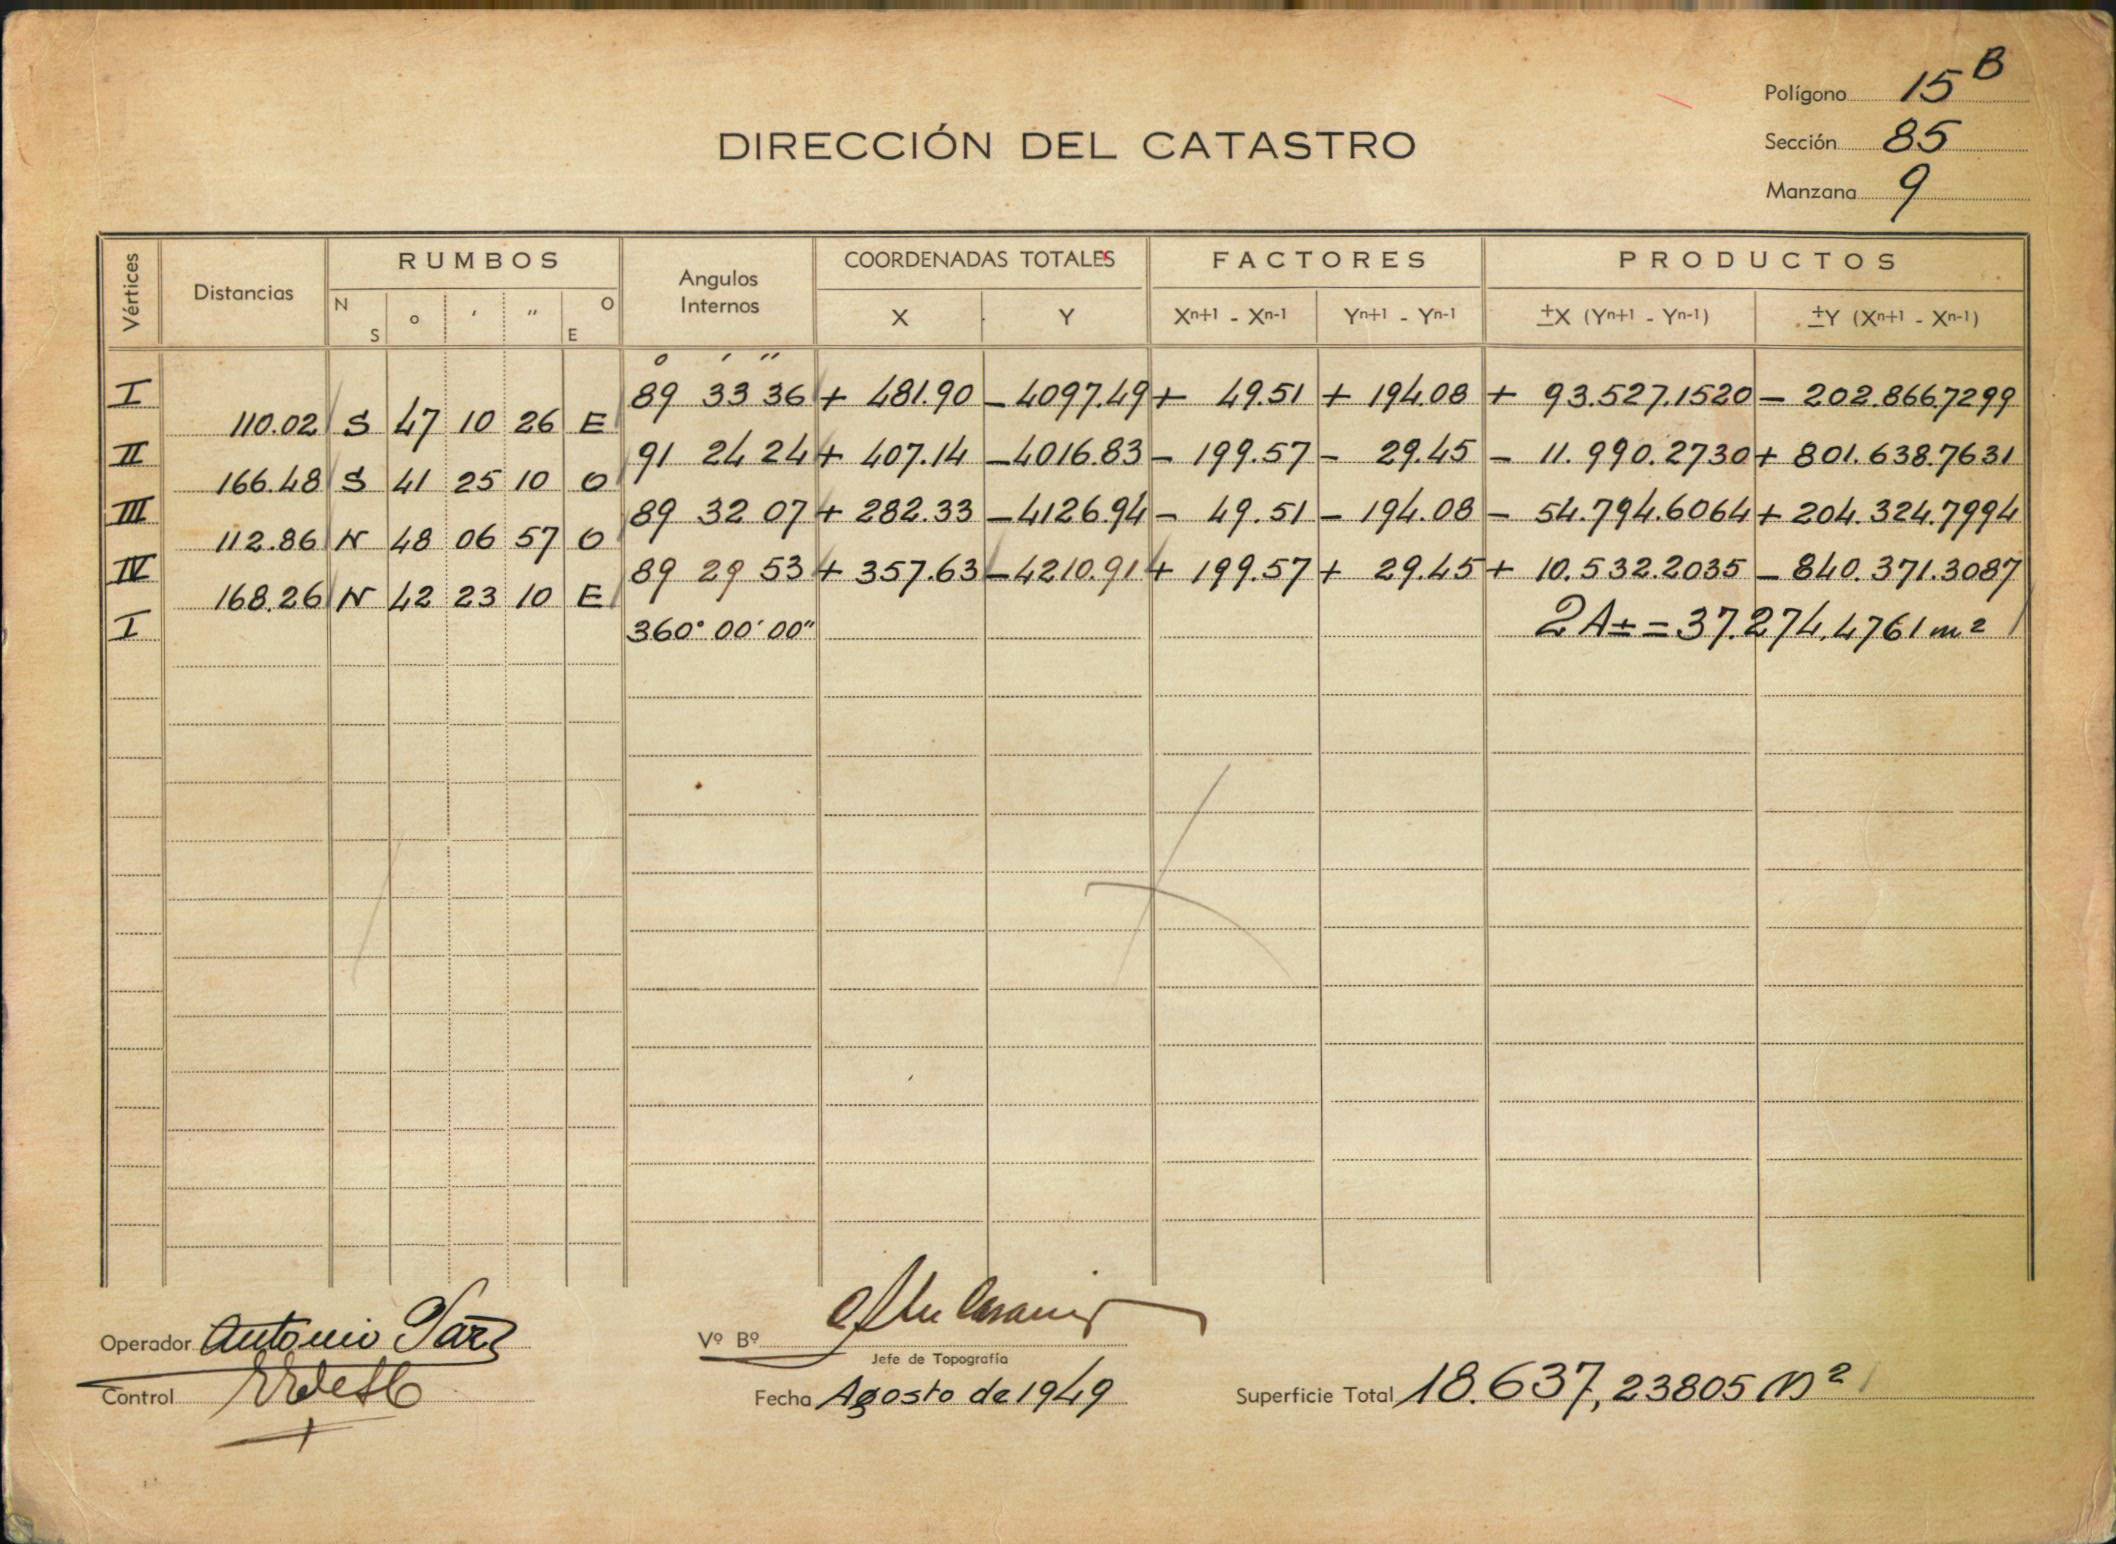 Polígono 15 B
DIRECCIÓN DEL CATASTRO
Sección 85
Manzana 9
Vértices Distancias RUMBOS Angulos Internos COORDENADAS TOTALES FACTORES PRODUCTOS
N S o ' " O E X Y Xn+1 - Xn-1 Yn+1 - Yn-1 ±X (Yn+1 - Yn-1) ±Y (Xn+1 - Xn-1)
o ' "
I 89 33 36 + 481.90 - 4097.49 + 49.51 + 194.08 + 93.527.1520 - 202.866.7299
110.02 S 47 10 26 E
II 91 24 24 + 407.14 - 4016.83 - 199.57 - 29.45 - 11.990.2730 + 801.638.7631
166.48 S 41 25 10 O
III 89 32 07 + 282.33 - 4126.94 - 49.51 - 194.08 - 54.794.6064 + 204.324.7994
112.86 N 48 06 57 O
IV 89 29 53 + 357.63 - 4210.91 + 199.57 + 29.45 + 10.532.2035 - 840.371.3087
168.26 N 42 23 10 E
I 360° 00' 00" 2A± = 37.274.4761 m²
Operador Antonio
Vº Bº
Jefe de Topografía
Control
Fecha Agosto de 1949
Superficie Total 18.637,23805 M²